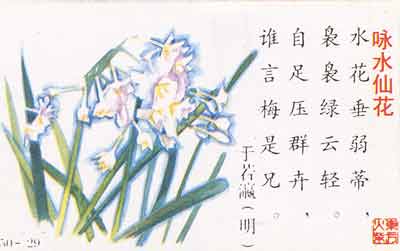 咏水仙花
水花垂弱蒂，
袅袅绿云轻。
自足压群卉，
谁言梅是兄。
于若瀛（明）